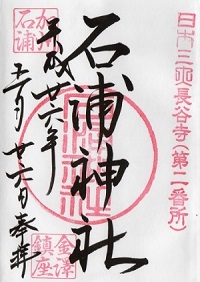 日本三大長谷寺(第二番所)
石浦神社
平成廿六年
十一月廿六日奉拝
加州
石浦
金澤
鎮座